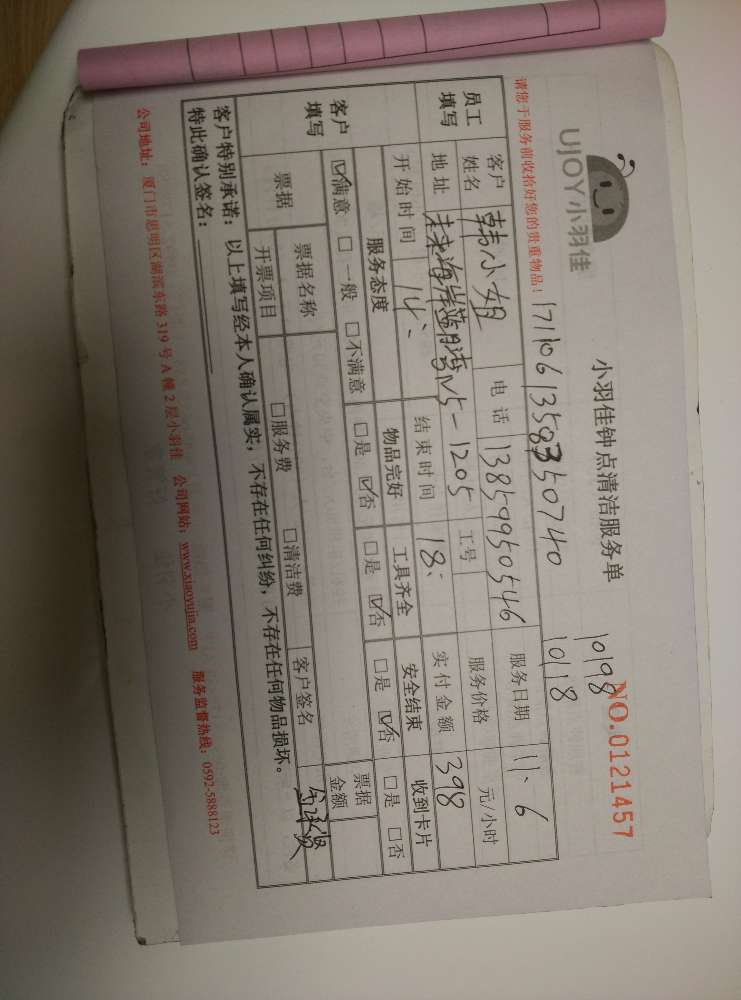 UJOY小羽佳
小羽佳钟点清洁服务单
10198
NO.0121457
10118
请您于服务前收拾好您的贵重物品! 17110613583350740
员工填写 客户姓名 韩小姐 电话 13859950546 服务日期 11、6
地址 未来海岸蓝月湾 5-1205 工号 服务价格 元/小时
开始时间 14: 结束时间 18: 实付金额 398
客户填写 服务态度 物品完好 工具齐全 安全结束 收到卡片
☑满意 □一般 □不满意 □是 ☑否 □是 ☑否 □是 ☑否 □是 □否
票据 票据名称 票据金额
开票项目 □服务费 □清洁费 客户签名
客户特别承诺: 以上填写经本人确认属实,不存在任何纠纷,不存在任何物品损坏。
特此确认签名:
公司地址: 厦门市思明区湖滨东路319号A幢2层小羽佳 公司网站: www.xiaoyujia.com 服务监督热线: 0592-5888123